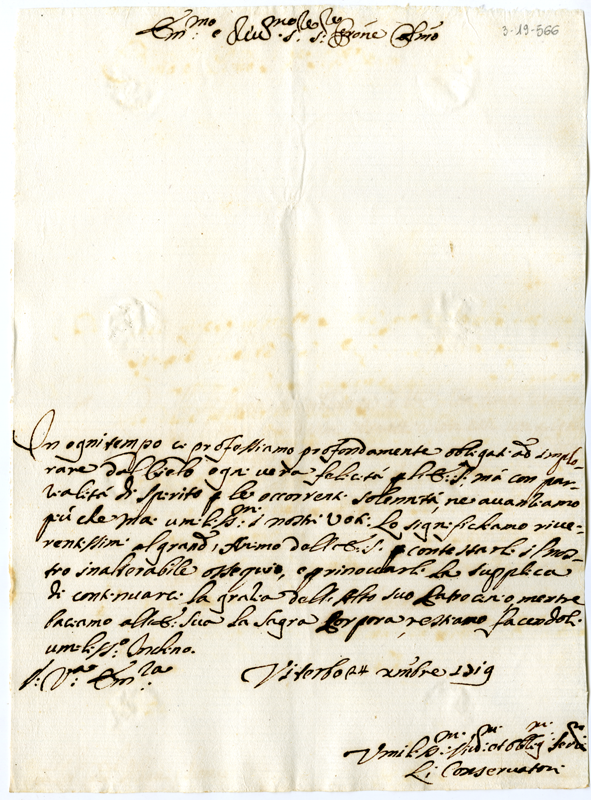 Em.mo e Rev.mo Sig.re Sig.re Prone Colmo
3-19-566
In ogni tempo ci professiamo profondamente obligati ad implo-
rare dal Cielo ogni vera felicità p l'E.S. mà con par-
zialità di spirito p le occorrenti solennità, ne avanziamo
più che mai umiliss.mi i nostri voti. Lo significhiamo rive-
rentissimi al grand'Animo dell'E.S. p contestarli il nos-
tro inalterabile ossequio, e p rinovarli la supplica
di continuarci la grazia dell'Alto suo Patrocinio, mentre
baciamo all'E. Sua la Sagra Porpora, restiamo facendoli
umiliss.o Inchino.
D. V.ra Em.za Viterbo 24 Xmbre 1719
Umiliss.mi et Obblig.mi
Li Conservatori